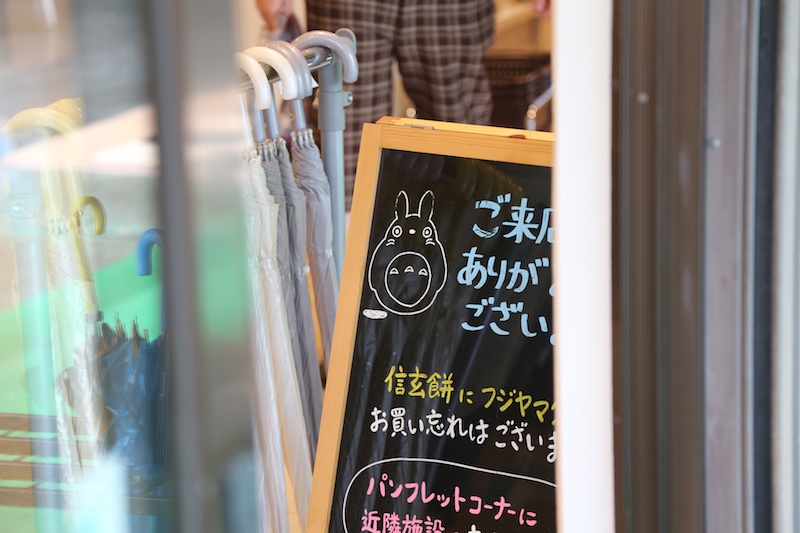 ご来店
ありが
ござい
信玄餅にフジヤマ
お買い忘れはございま
パンフレットコーナーに
近隣施設